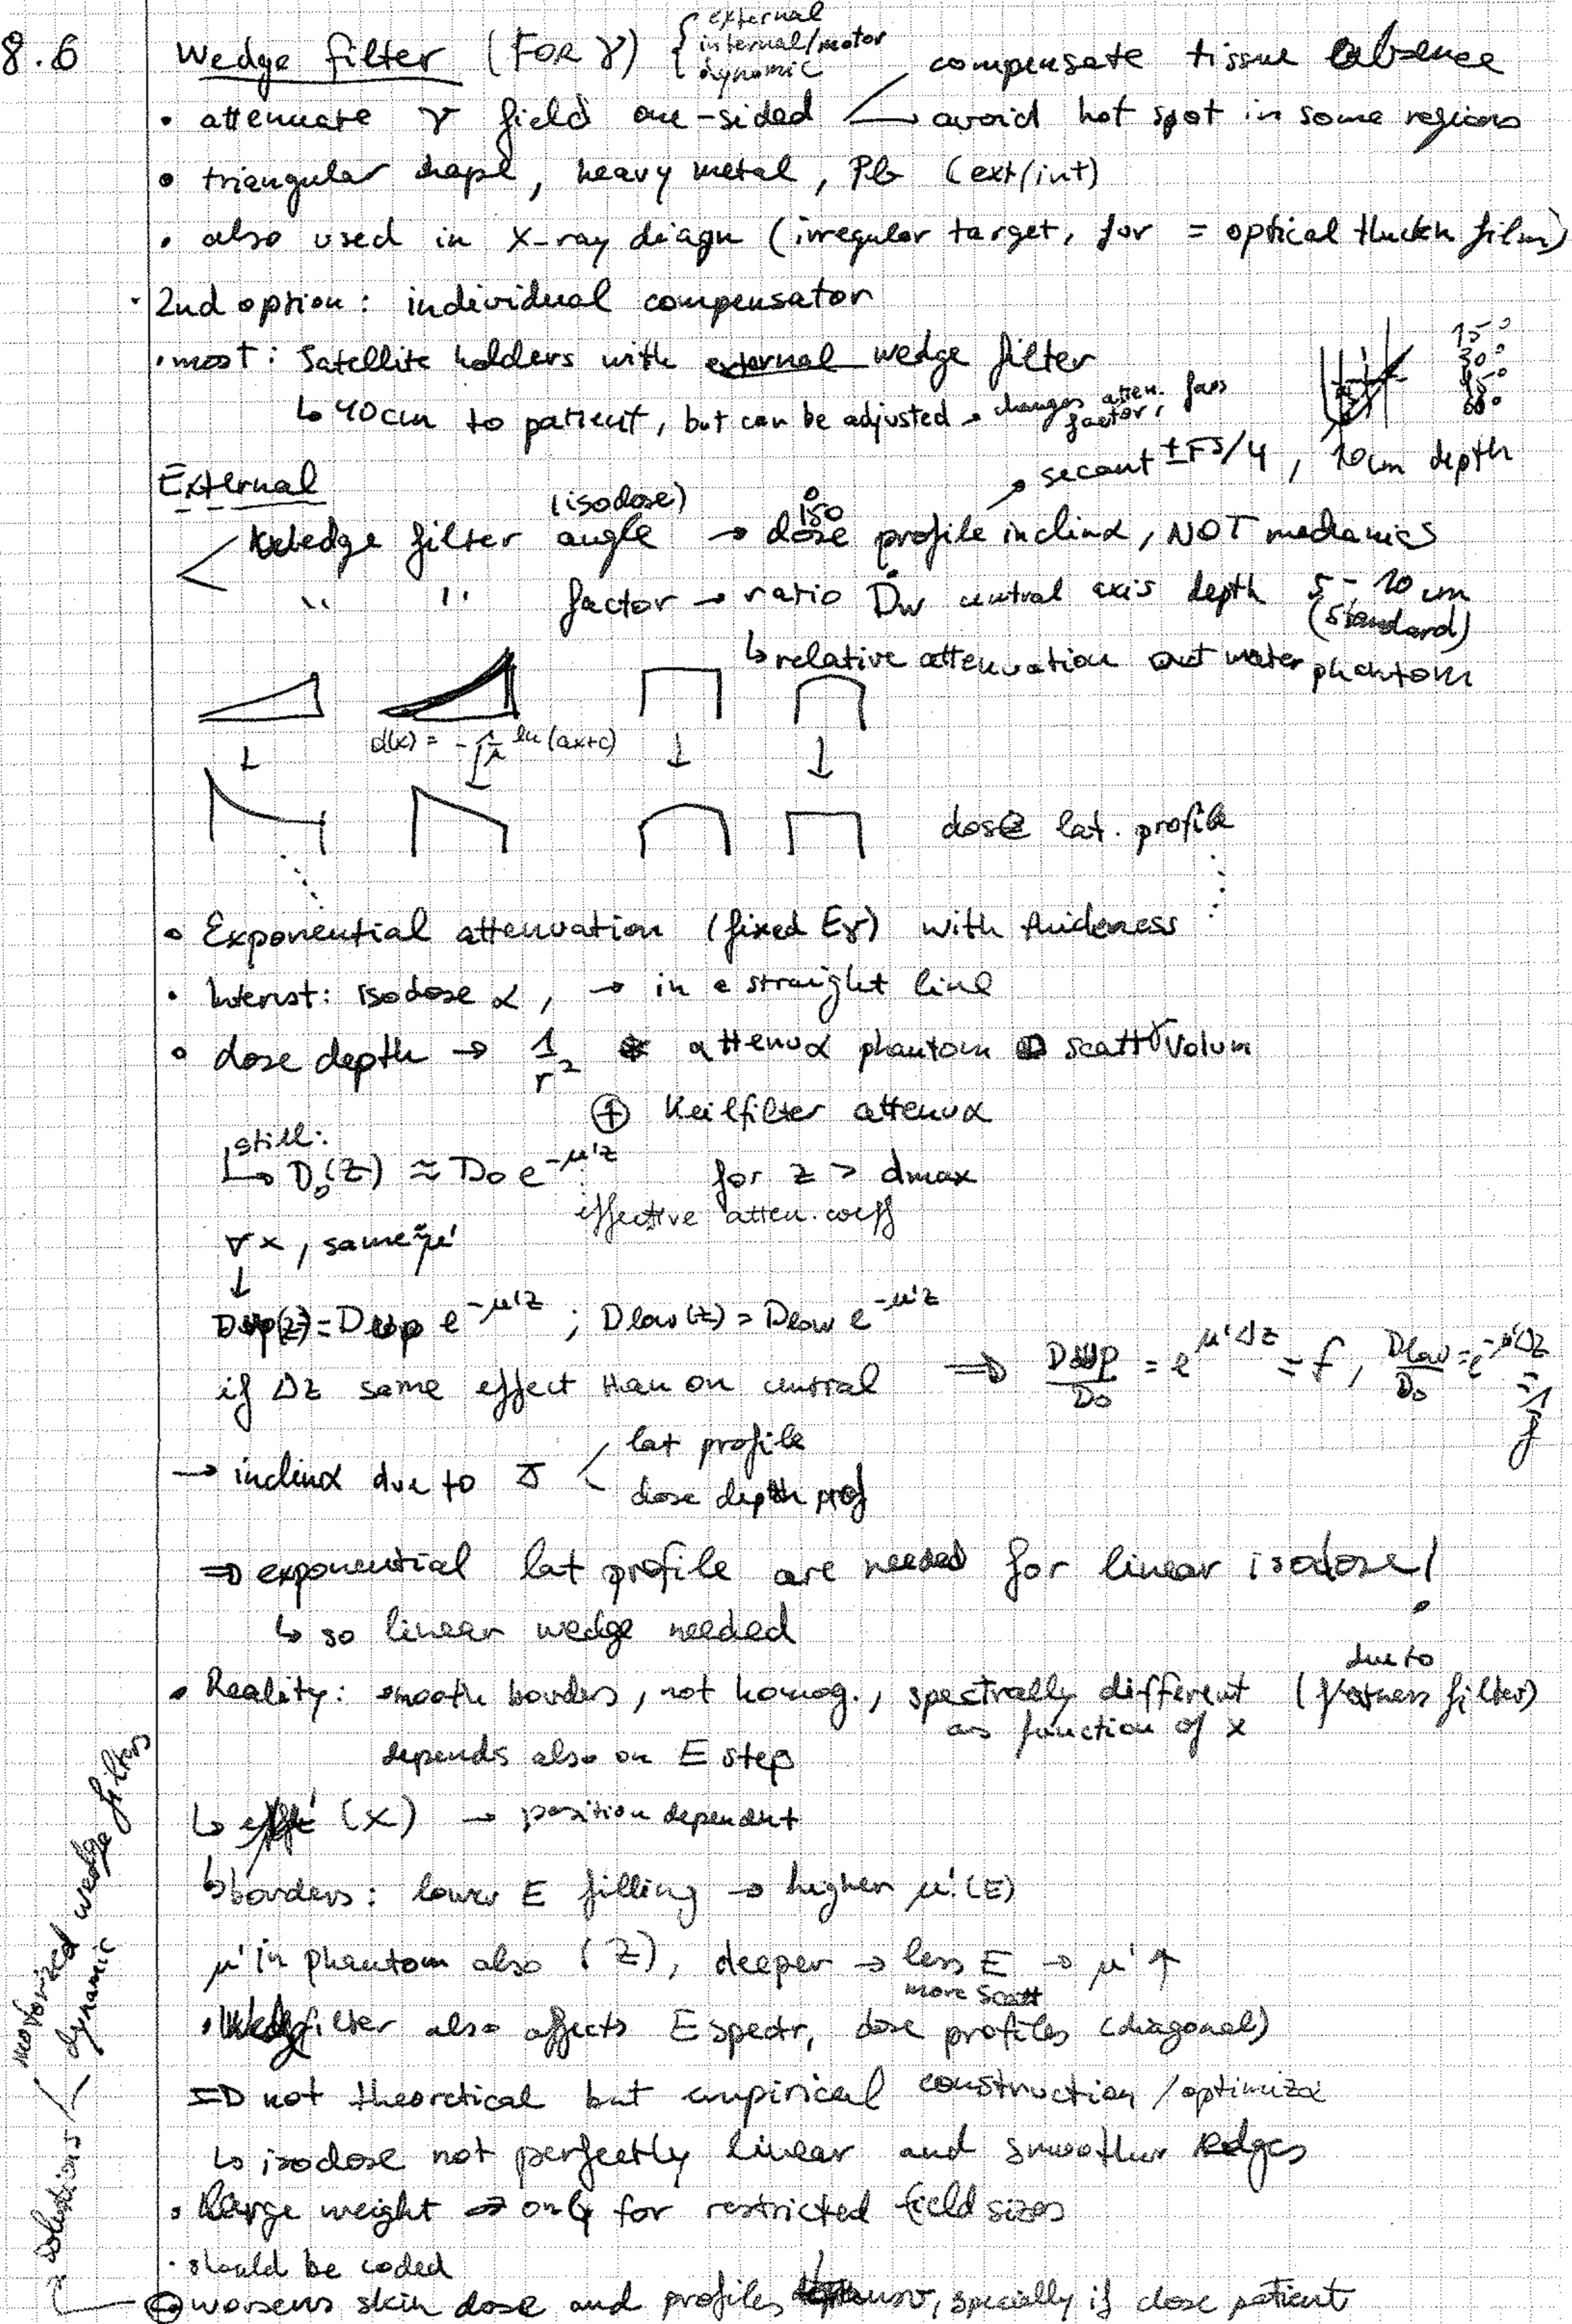 8.6 Wedge filter (FOR γ) { external
internal/motor
dynamic
compensate tissue absence
• attenuate γ field one-sided → avoid hot spot in some regions
• triangular shape, heavy metal, Pb (ext/int)
• also used in X-ray diagn (irregular target, for = optical thickn film)
• 2nd option: individual compensator
• most: Satellite holders with external wedge filter
15°
30°
45°
60°
↳ 40cm to patient, but can be adjusted → changes atten. factor,
secant ±FS/4, 10cm depth
External
Wedge filter angle (isodose) → isodose profile inclinα, NOT mechanics
" " factor → ratio Ḋw central axis depth 5-10 cm
(standard)
↳ relative attenuation out water phantom
d(x) = -1/μ ln(ax+c)
dose lat. profile
• Exponential attenuation (fixed Eγ) with thickness
• Interest: isodose α, → in a straight line
• dose depth → 1/r² * attenuα phantom scattγ Volum
⊕ Keilfilter attenuα
still:
↳ D₀(z) ≈ D₀ e^-μ'z for z > dmax
effective atten. coeff
∀x, same ≈μ'
↓
Dup(z) = Dup e^-μ'z ; Dlow(z) = Dlow e^-μ'z
if Δz same effect than on central ⇒ Dup/D₀ = e^μ'Δz = f, Dlow/D₀ = e^-μ'Δz = 1/f
→ inclinα due to lat profile
dose depth prof
⇒ exponential lat profile are needed for linear isodose!
↳ so linear wedge needed
• Reality: smooth borders, not homog., spectrally different (due to flatness filter)
as function of x
depends also on E step
↳ (x) → position dependent
↳ borders: lower E filling → higher μ'(E)
μ' in phantom also (z), deeper → less E → μ' ↑
more scatt
• Wedgefilter also affects E spectr, dose profiles (diagonal)
⇒ not theoretical but empirical construction/optimizα
↳ isodose not perfectly linear and smoother edges
• Large weight → only for restricted field sizes
• should be coded
⊖ worsens skin dose and profiles, specially if close patient
→ solutions / motorized wedge filters
dynamic